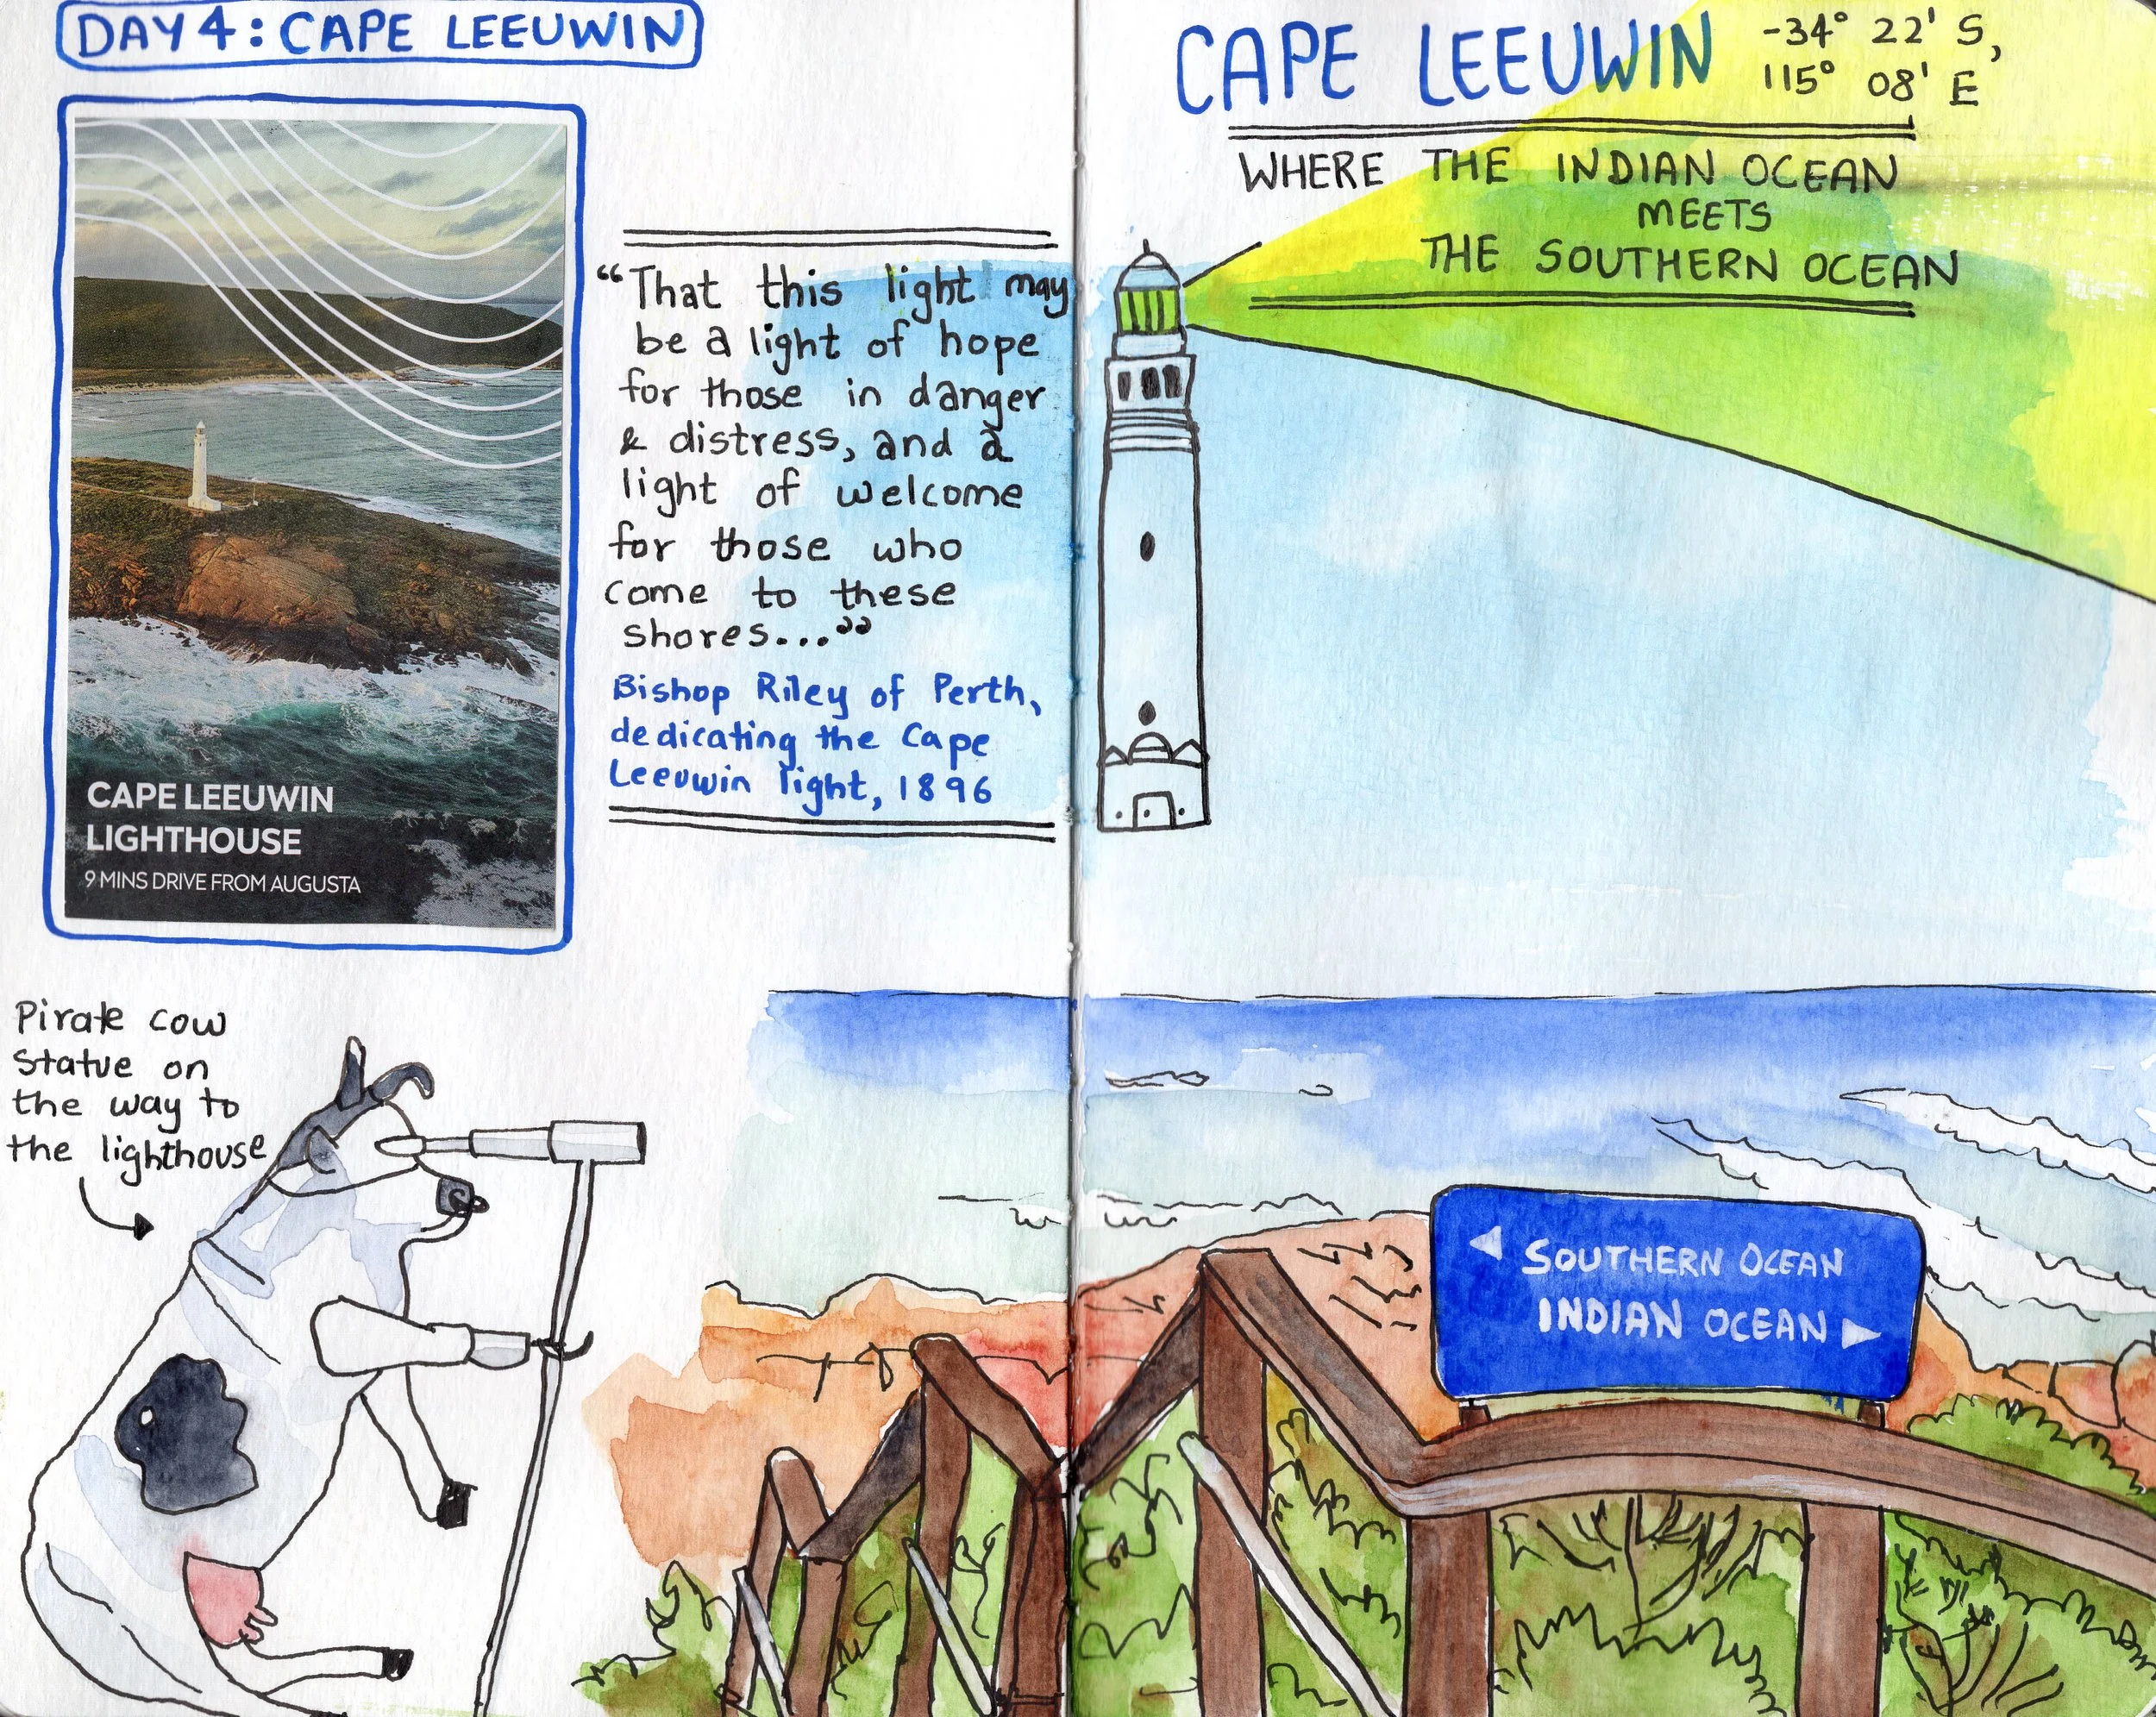 DAY 4: CAPE LEEUWIN
CAPE LEEUWIN
LIGHTHOUSE
9 MINS DRIVE FROM AUGUSTA
“That this light may
be a light of hope
for those in danger
& distress, and a
light of welcome
for those who
come to these
shores...”
Bishop Riley of Perth,
dedicating the Cape
Leeuwin light, 1896
Pirate cow
statue on
the way to
the lighthouse
CAPE LEEUWIN
-34° 22' S,
115° 08' E
WHERE THE INDIAN OCEAN
MEETS
THE SOUTHERN OCEAN
◀ SOUTHERN OCEAN
INDIAN OCEAN ▶